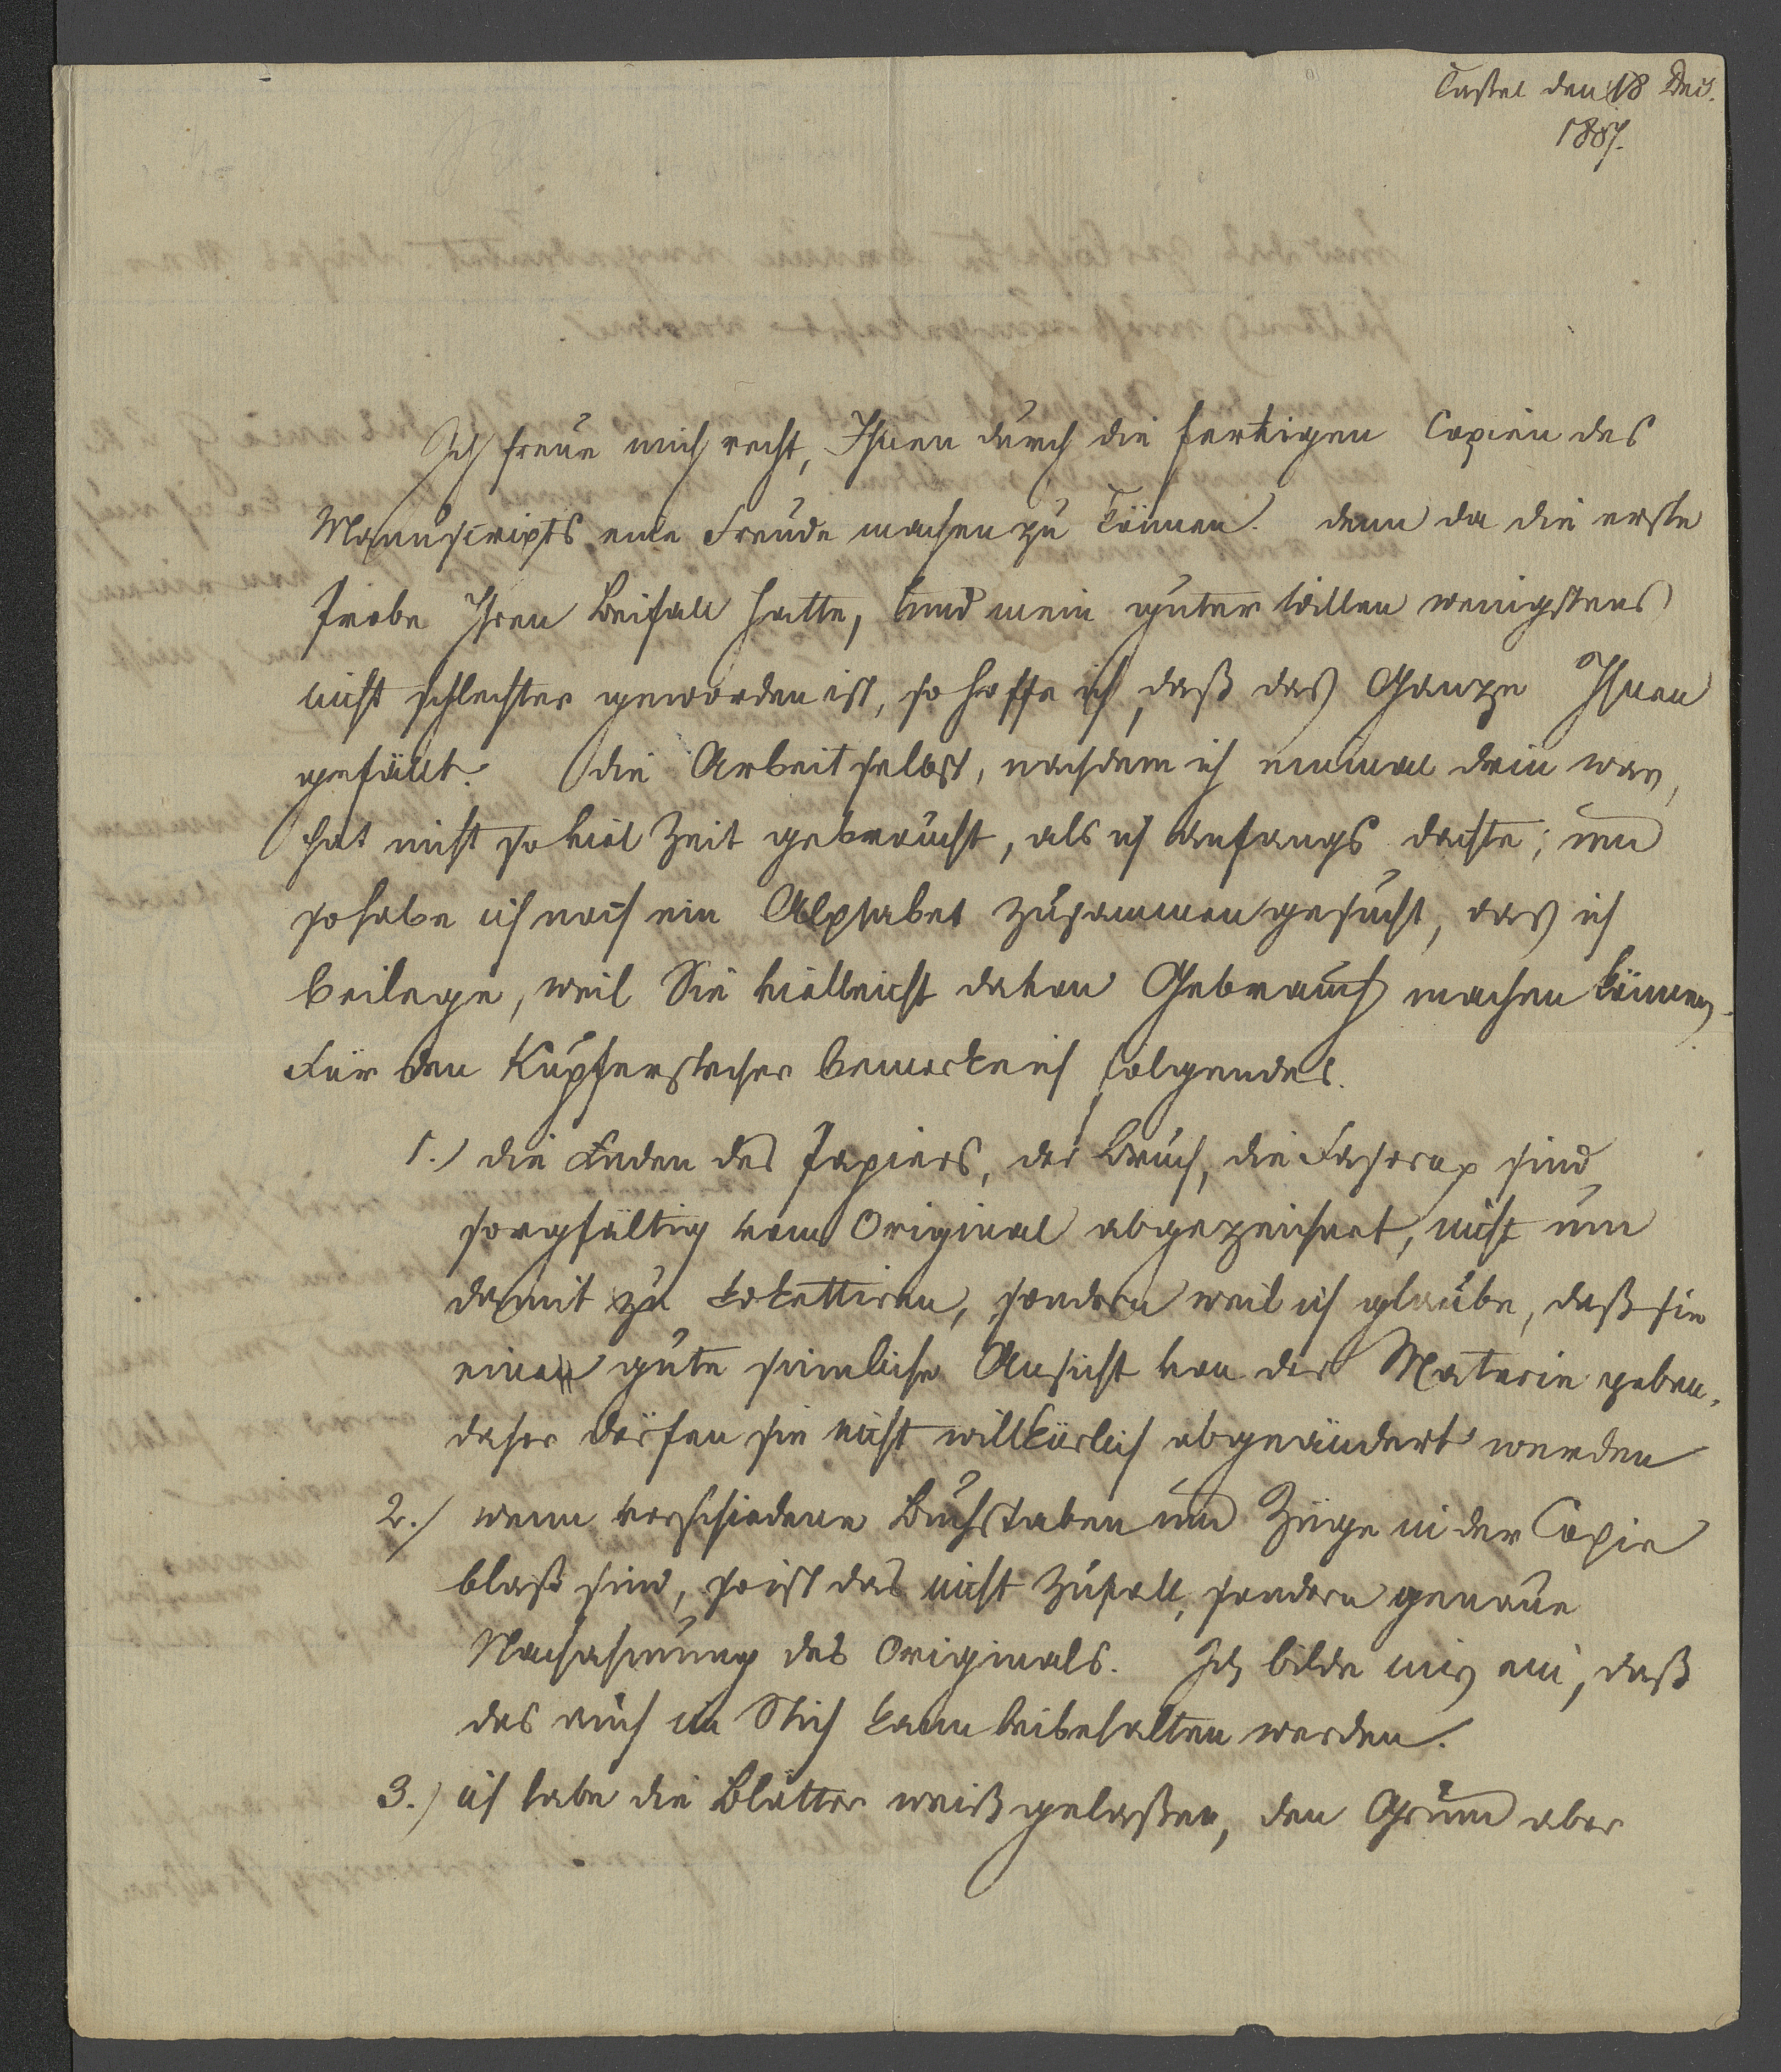 Cassel den 18 Dec.
1807.
Ich freue mich recht, Ihnen durch die fertigen Copien des
Manuscripts eine Freude machen zu können. denn da die erste
Probe Ihren Beifall hatte, und mein guter Willen wenigstens
nicht schlechter geworden ist, so hoffe ich, daß das Ganze Ihnen
gefällt. Die Arbeit selbst, nachdem ich einmal drin war,
hat nicht so viel Zeit gebraucht, als ich Anfangs dachte; und
so habe ich noch ein Alphabet zusammengesucht, das ich
beilege, weil Sie vielleicht davon Gebrauch machen können.
Für den Kupferstecher bemerke ich folgendes.
1.) die Enden des Papiers, der Bruch, die sind
sorgfältig vom Original abgezeichnet, nicht um
damit zu kokettiren, sondern weil ich glaube, daß sie
eine gute sinnliche Ansicht von der Materie geben.
daher dörfen sie nicht willkürlich abgeändert werden
2.) wenn verschiedene Buchstaben und Züge in der Copie
blaß sind, so ist das nicht Zufall, sondern genaue
Nachahmung des Originals. Ich bilde mir ein, daß
das auch im Stich kann beibehalten werden.
3.) ich habe die Blätter weiß gelaßen, den Grund aber